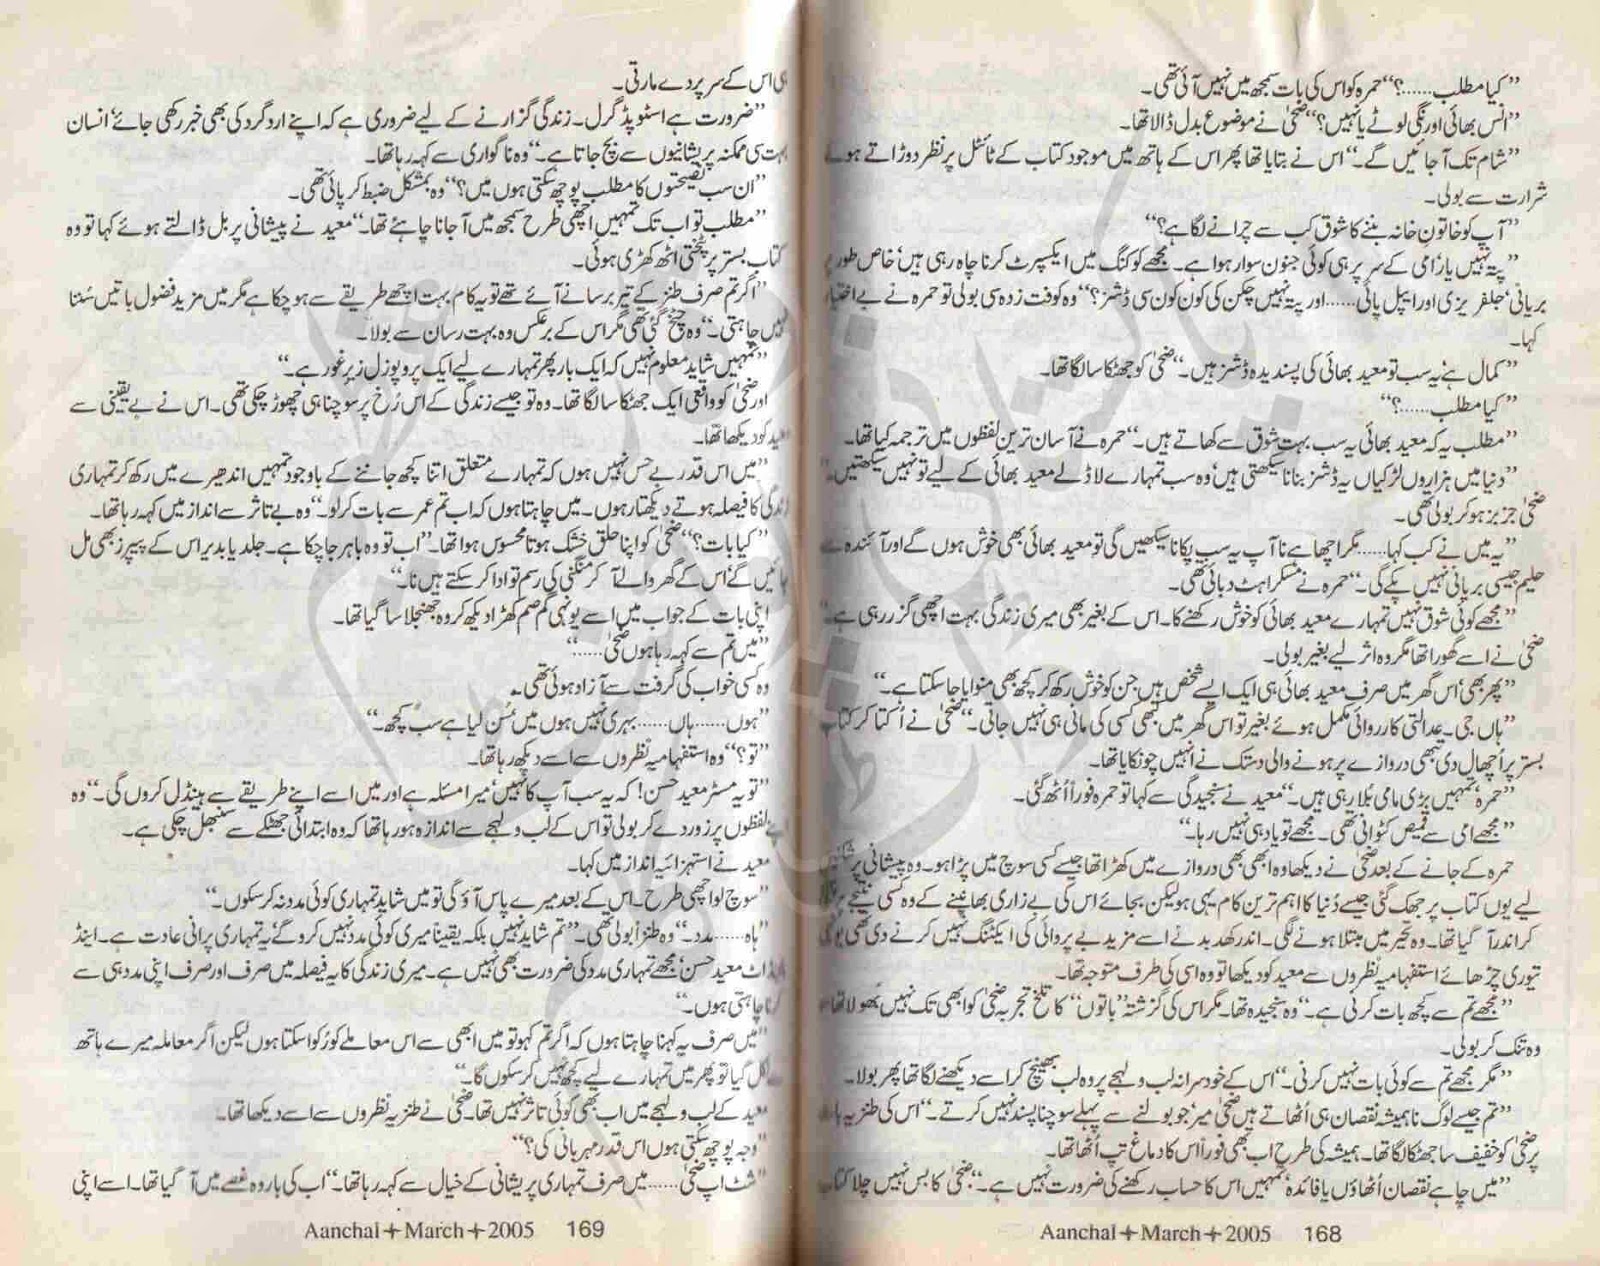 ”کیا مطلب......؟“ حمرہ کو اس کی بات سمجھ میں نہیں آئی تھی۔
”انس بھائی اور نگی لوٹے یا نہیں؟“ ضحیٰ نے موضوع بدل ڈالا تھا۔
”شام تک آ جائیں گے۔“ اس نے بتایا تھا پھر اس کے ہاتھ میں موجود کتاب کے ٹائٹل پر نظر دوڑاتے ہوئے
شرارت سے بولی۔
”آپ کو خاتون خانہ بننے کا شوق کب سے چرانے لگا ہے؟“
”پتہ نہیں یار‘ امی کے سر پر ہی کوئی جنون سوار ہوا ہے۔ مجھے کوکنگ میں ایکسپرٹ کرنا چاہ رہی ہیں‘ خاص طور پر
بریانی‘ جلفریزی اور ایپل پائی...... اور پتہ نہیں چکن کی کون کون سی ڈشز؟“ وہ کوفت زدہ سی بولی تو حمرہ نے بے اختیار
کہا۔
”کمال ہے‘ یہ سب تو معید بھائی کی پسندیدہ ڈشز ہیں۔“ ضحیٰ کو جھٹکا سا لگا تھا۔
”کیا مطلب......؟“
”مطلب یہ کہ معید بھائی یہ سب بہت شوق سے کھاتے ہیں۔“ حمرہ نے آسان ترین لفظوں میں ترجمہ کیا تھا۔
”دنیا میں ہزاروں لڑکیاں یہ ڈشز بنانا سیکھتی ہیں‘ وہ سب تمہارے لاڈلے معید بھائی کے لیے تو نہیں سیکھتیں۔“
ضحیٰ جزبز ہو کر بولی تھی۔
”یہ میں نے کب کہا...... مگر اچھا ہے نا آپ یہ سب پکانا سیکھیں گی تو معید بھائی بھی خوش ہوں گے اور آئندہ سے
حلیم جیسی بریانی نہیں پکے گی۔“ حمرہ نے مسکراہٹ دبائی تھی۔
”مجھے کوئی شوق نہیں تمہارے معید بھائی کو خوش رکھنے کا۔ اس کے بغیر بھی میری زندگی بہت اچھی گزر رہی ہے۔“
ضحیٰ نے اسے گھورا تھا مگر وہ اثر لیے بغیر بولی۔
”پھر بھی‘ اس گھر میں صرف معید بھائی ہی ایک ایسے شخص ہیں جن کو خوش رکھ کر کچھ بھی منوایا جا سکتا ہے۔“
”ہاں جی۔ عدالتی کارروائی مکمل ہوئے بغیر تو اس گھر میں کبھی کسی کی مانی ہی نہیں جاتی۔“ ضحیٰ نے اُکتا کر کتاب
بستر پر اُچھال دی تبھی دروازے پر ہونے والی دستک نے انہیں چونکایا تھا۔
”حمرہ‘ تمہیں بڑی مامی بلا رہی ہیں۔“ معید نے سنجیدگی سے کہا تو حمرہ فوراً اُٹھ گئی۔
”مجھے امی سے قمیص کٹوانی تھی۔ مجھے تو یاد ہی نہیں رہا۔“
حمرہ کے جانے کے بعد ضحیٰ نے دیکھا وہ ابھی بھی دروازے میں کھڑا تھا جیسے کسی سوچ میں پڑا ہو۔ وہ پیشانی پر شکنیں
لیے یوں کتاب پر جھک گئی جیسے دُنیا کا اہم ترین کام یہی ہو لیکن بجائے اس کی بے زاری بھانپنے کے وہ کسی نتیجے پر پہنچ
کر اندر آ گیا تھا۔ وہ تحیر میں مبتلا ہونے لگی۔ اندر کھد بد نے اسے مزید بے پروائی کی ایکٹنگ نہیں کرنے دی تھی یونہی
تیوری چڑھائے استفہامیہ نظروں سے معید کو دیکھا تو وہ اسی کی طرف متوجہ تھا۔
”مجھے تم سے کچھ بات کرنی ہے۔“ وہ سنجیدہ تھا۔ مگر اس کی گزشتہ ”باتوں“ کا تلخ تجربہ ضحیٰ کو ابھی تک نہیں بھولا تھا۔
وہ تنک کر بولی۔
”مگر مجھے تم سے کوئی بات نہیں کرنی۔“ اس کے خود سرانہ لب و لہجے پر وہ لب بھینچ کر اسے دیکھنے لگا تھا پھر بولا۔
”تم جیسے لوگ نا ہمیشہ نقصان ہی اُٹھاتے ہیں ضحیٰ میر‘ جو بولنے سے پہلے سوچنا پسند نہیں کرتے۔“ اس کی طنزیہ بات
پر ضحیٰ کو خفیف سا جھٹکا لگا تھا۔ ہمیشہ کی طرح اب بھی فوراً اس کا دماغ تپ اُٹھا تھا۔
”میں چاہے نقصان اُٹھاؤں یا فائدہ‘ تمہیں اس کا حساب رکھنے کی ضرورت نہیں ہے۔“ ضحیٰ کا بس نہیں چلا کتاب
Aanchal+March+2005 168
ہی اس کے سر پر دے مارتی۔
”ضرورت ہے اسٹوپڈ گرل۔ زندگی گزارنے کے لیے ضروری ہے کہ اپنے ارد گرد کی بھی خبر رکھی جائے‘ انسان
بہت سی ممکنہ پریشانیوں سے بچ جاتا ہے۔“ وہ ناگواری سے کہہ رہا تھا۔
”ان سب نصیحتوں کا مطلب پوچھ سکتی ہوں میں؟“ وہ بمشکل ضبط کر پائی تھی۔
”مطلب تو اب تک تمہیں اچھی طرح سمجھ میں آ جانا چاہئے تھا۔“ معید نے پیشانی پر بل ڈالتے ہوئے کہا تو وہ
کتاب بستر پر پٹختی اٹھ کھڑی ہوئی۔
”اگر تم صرف طنز کے تیر برسانے آئے تھے تو یہ کام بہت اچھے طریقے سے ہو چکا ہے مگر میں مزید فضول باتیں سُننا
نہیں چاہتی۔“ وہ چیخ گئی تھی مگر اس کے برعکس وہ بہت رسان سے بولا۔
”تمہیں شاید معلوم نہیں کہ ایک بار پھر تمہارے لیے ایک پروپوزل زیرِ غور ہے۔“
اور ضحیٰ کو واقعی ایک جھٹکا سا لگا تھا۔ وہ تو جیسے زندگی کے اس رُخ پر سوچنا ہی چھوڑ چکی تھی۔ اس نے بے یقینی سے
معید کو دیکھا تھا۔
”میں اس قدر بے حس نہیں ہوں کہ تمہارے متعلق اتنا کچھ جاننے کے باوجود تمہیں اندھیرے میں رکھ کر تمہاری
زندگی کا فیصلہ ہوتے دیکھتا رہوں۔ میں چاہتا ہوں کہ اب تم عمر سے بات کر لو۔“ وہ بے تاثر سے انداز میں کہہ رہا تھا۔
”کیا بات؟“ ضحیٰ کو اپنا حلق خشک ہوتا محسوس ہوا تھا۔ ”اب تو وہ باہر جا چکا ہے۔ جلد یا بدیر اس کے پیپرز بھی مل
جائیں گے‘ اس کے گھر والے آ کر منگنی کی رسم تو ادا کر سکتے ہیں نا۔“
اپنی بات کے جواب میں اسے یونہی گم صم کھڑا دیکھ کر وہ جھنجلا سا گیا تھا۔
”میں تم سے کہہ رہا ہوں ضحیٰ......“
وہ کسی خواب کی گرفت سے آزاد ہوئی تھی۔
”ہوں...... ہاں...... بہری نہیں ہوں میں‘ سُن لیا ہے سب کچھ۔“
”تو؟“ وہ استفہامیہ نظروں سے اسے دیکھ رہا تھا۔
”تو یہ مسٹر معید حسن! کہ یہ سب آپ کا نہیں‘ میرا مسئلہ ہے اور میں اسے اپنے طریقے سے ہینڈل کروں گی۔“ وہ
اپنے لفظوں پر زور دے کر بولی تو اس کے لب و لہجے سے اندازہ ہو رہا تھا کہ وہ ابتدائی جھٹکے سے سنبھل چکی ہے۔
معید نے استہزائیہ انداز میں کہا۔
”سوچ لو اچھی طرح۔ اس کے بعد میرے پاس آؤ گی تو میں شاید تمہاری کوئی مدد نہ کر سکوں۔“
”ہاہ...... مدد۔“ وہ طنزاً بولی تھی۔ ”تم شاید نہیں بلکہ یقیناً میری کوئی مدد نہیں کرو گے‘ یہ تمہاری پرانی عادت ہے۔ اینڈ
معید حسن‘ مجھے تمہاری مدد کی ضرورت بھی نہیں ہے۔ میری زندگی کا یہ فیصلہ میں صرف اور صرف اپنی مدد ہی سے
کرنا چاہتی ہوں۔“
”میں صرف یہ کہنا چاہتا ہوں کہ اگر تم کہو تو میں ابھی سے اس معاملے کو رُکوا سکتا ہوں لیکن اگر معاملہ میرے ہاتھ
سے نکل گیا تو پھر میں تمہارے لیے کچھ نہیں کر سکوں گا۔“
معید کے لب و لہجے میں اب بھی کوئی تاثر نہیں تھا۔ ضحیٰ نے طنزیہ نظروں سے اسے دیکھا تھا۔
”وجہ پوچھ سکتی ہوں اس قدر مہربانی کی؟“
”شٹ اپ ضحیٰ...... میں صرف تمہاری پریشانی کے خیال سے کہہ رہا تھا۔“ اب کی بار وہ غصے میں آ گیا تھا۔ اسے اپنی
Aanchal+March+2005 169